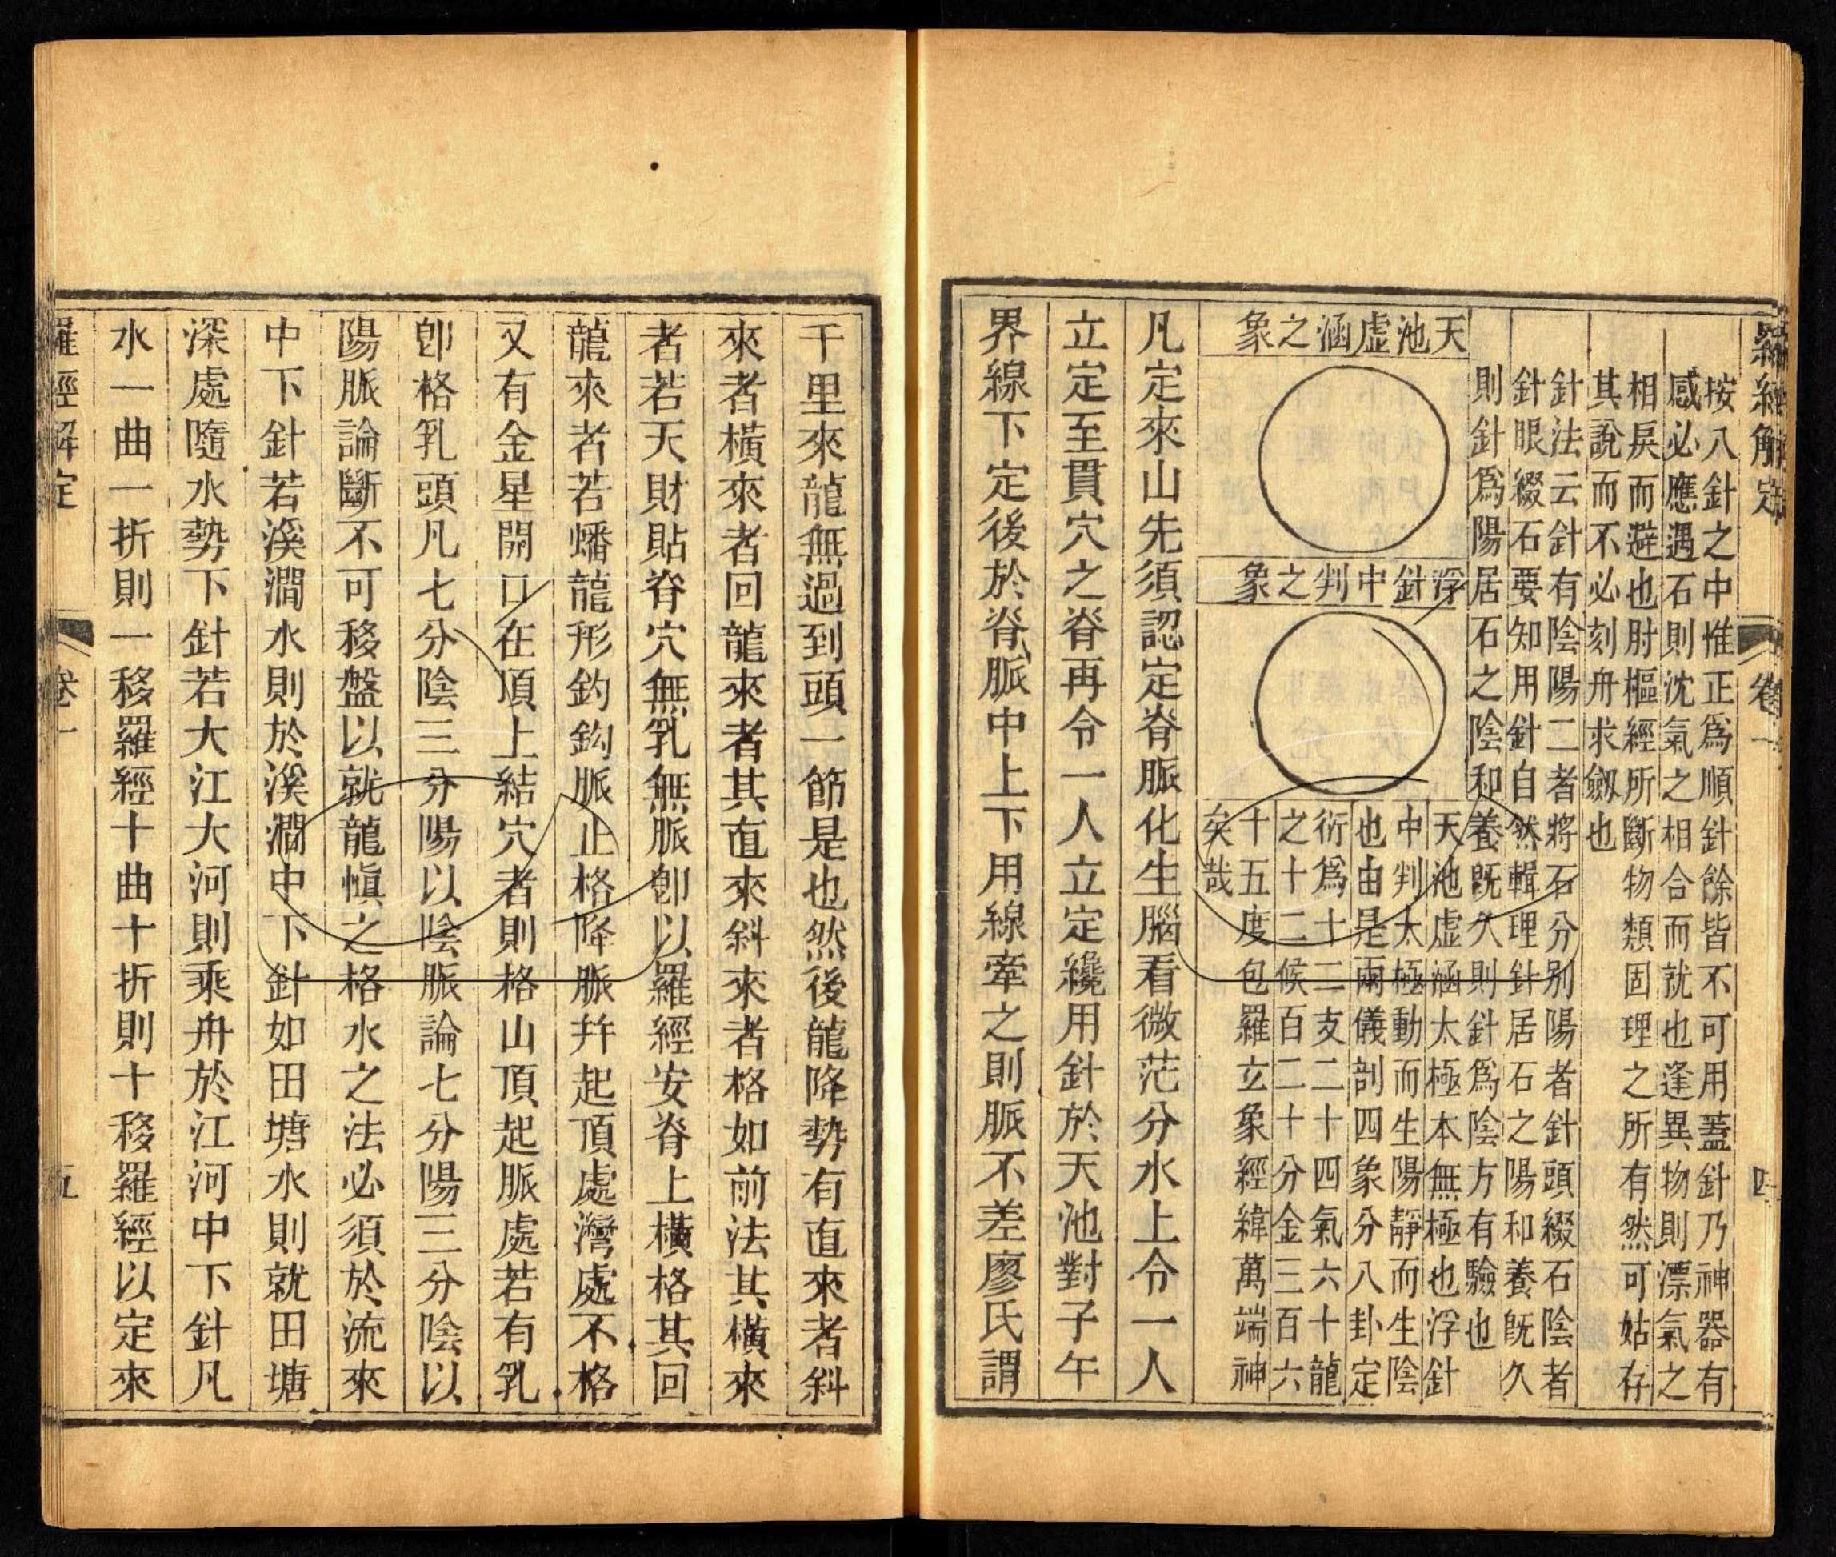 羅經解定 卷一 四
按八針之中惟正爲順針餘皆不可用蓋針乃神器有
感必應遇石則沈氣之相合而就也逢異物則漂氣之
相戾而避也肘樞經所斷物類固理之所有然可姑存
其說而不必刻舟求劔也
針法云針有陰陽二者將石分別陽者針頭綴石陰者
針眼綴石要知用針自然輯理針居石之陽和養旣久
則針爲陽居石之陰和養旣久則針爲陰方有驗也
天池虛涵之象
浮針中判之象
天池虛涵太極本無極也浮針
中判太極動而生陽靜而生陰
也由是兩儀剖四象分八卦定
衍爲十二支二十四氣六十龍
之十二候百二十分金三百六
十五度包羅立象經緯萬端神
矣哉
凡定來山先須認定脊脈化生腦看微茫分水上令一人
立定至貫穴之脊再令一人立定纔用針於天池對子午
界線下定後於脊脈中上下用線牽之則脈不差廖氏謂
千里來龍無過到頭一節是也然後龍降勢有直來者斜
來者橫來者回龍來者其直來斜來者格如前法其橫來
者若天財貼脊穴無乳無脈卽以羅經安脊上橫格其回
龍來者若蟠龍形釣鈎脈止格降脈幷起頂處灣處不格
又有金星開口在頂上結穴者則格山頂起脈處若有乳
卽格乳頭凡七分陰三分陽以陰脈論七分陽三分陰以
陽脈論斷不可移盤以就龍愼之格水之法必須於流來
中下針若溪澗水則於溪澗中下針如田塘水則就田塘
深處隨水勢下針若大江大河則乘舟於江河中下針凡
水一曲一折則一移羅經十曲十折則十移羅經以定來
羅經解定 卷一 五